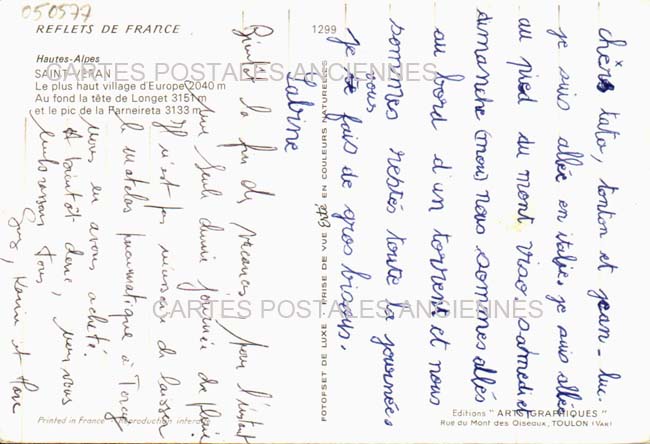 050577
REFLETS DE FRANCE
1299
Hautes-Alpes
SAINT-VERAN
Le plus haut village d'Europe 2040 m
Au fond la tête de Longet 3151 m
et le pic de la Farneireta 3133 m
CARTES POSTALES ANCIENNES
chères tata, tonton et jean-luc.
je suis allée en italie. je suis allée
au pied du mont viso. samedi et
dimanche (mous) nous sommes allés
au bord d'un torrent et nous
sommes restés toute la journée.
je vous fais de gros bisous.
Sabine
Bientôt la fin des vacances, pour l'instant
une seule demie journée de pluie
Il n'est pas nécessaire de laisser
le matelas pneumatique à Torcy
nous en avons acheté.
A bientôt donc, nous vous
embrassons tous
Guy, Karine et
PHOTOGRAPHIE
CARTES POSTALES ANCIENNES
Printed in France - Reproduction interdite
Editions "ARTS GRAPHIQUES"
Rue du Mont des Oiseaux, TOULON (VAR)